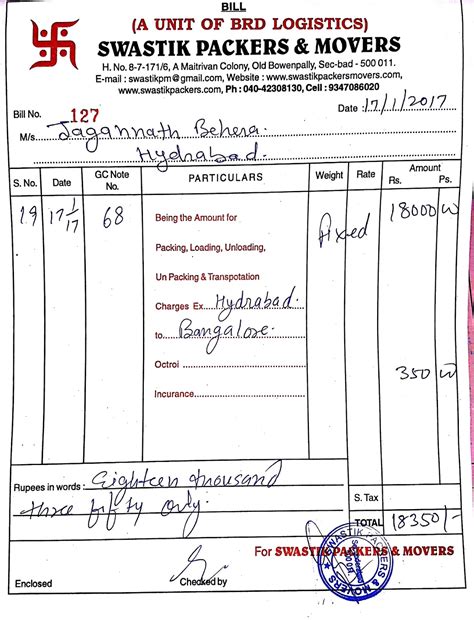 BILL
(A UNIT OF BRD LOGISTICS)
SWASTIK PACKERS & MOVERS
H. No. 8-7-171/6, A Maitrivan Colony, Old Bowenpally, Sec-bad - 500 011.
E-mail : swastikpm@gmail.com, Website : www.swastikpackersmovers.com,
www.swastikpackers.com, Ph : 040-42308130, Cell : 9347086020
Bill No. 127 Date : 17/1/2017
M/s Jagannath Behera
Hydrabad.
S. No. Date GC Note No. PARTICULARS Weight Rate Amount Rs. Ps.
19 17/1/17 68 Being the Amount for fixed 18000
Packing, Loading, Unloading,
Un Packing & Transpotation
Charges Ex Hydrabad.
to Bangalore.
Octroi 350
Insurance
Rupees in words : Eighteen thousand
three fifty only.
S. Tax
TOTAL 18350/-
For SWASTIK PACKERS & MOVERS
SWASTIK PACKERS & MOVERS
Enclosed Checked by